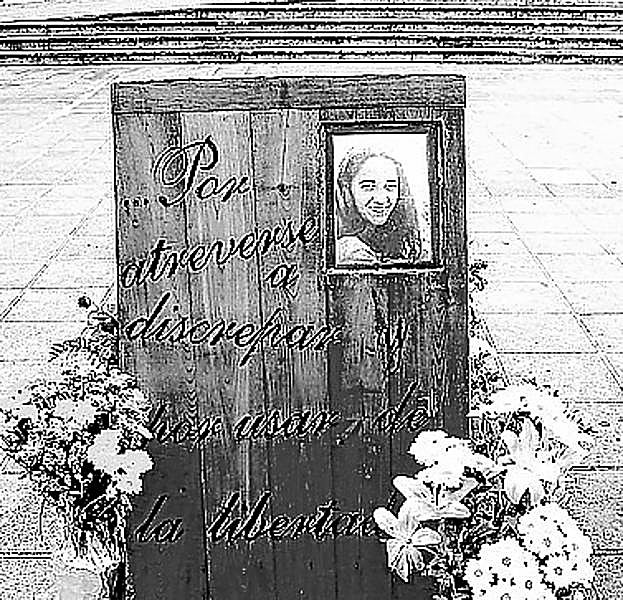 ...Por
atreverse
a
discrepar y
por usar de
la libertad